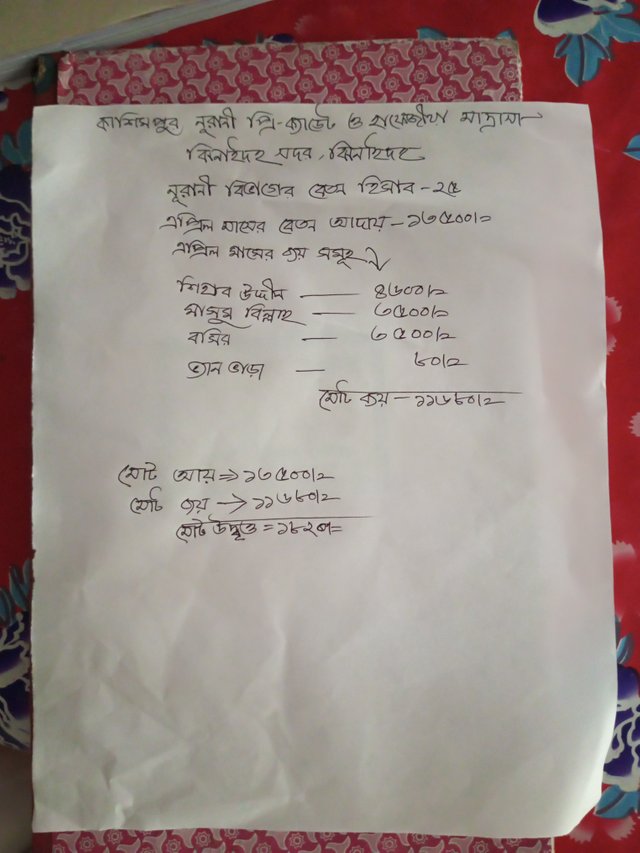 কাশিমপুর নূরানী প্রি-ক্যাডেট ও হাফেজীয়া মাদ্রাসা
ঝিনাইদহ সদর, ঝিনাইদহ
নূরানী বিভাগের বেতন হিসাব - ২৫
এপ্রিল মাসের বেতন আদায় - ১৩৫০০/=
এপ্রিল মাসের ব্যয় সমূহ
শিহাব উদ্দীন — ৪৬০০/=
মাসুম বিল্লাহ — ৩৫০০/=
বসির — ৩৫০০/=
ভ্যান ভাড়া — ৮০/=
মোট ব্যয় - ১১৬৮০/=
মোট আয় ⇒ ১৩৫০০/=
মোট ব্যয় → ১১৬৮০/=
মোট উদ্বৃত্ত = ১৮২০/=